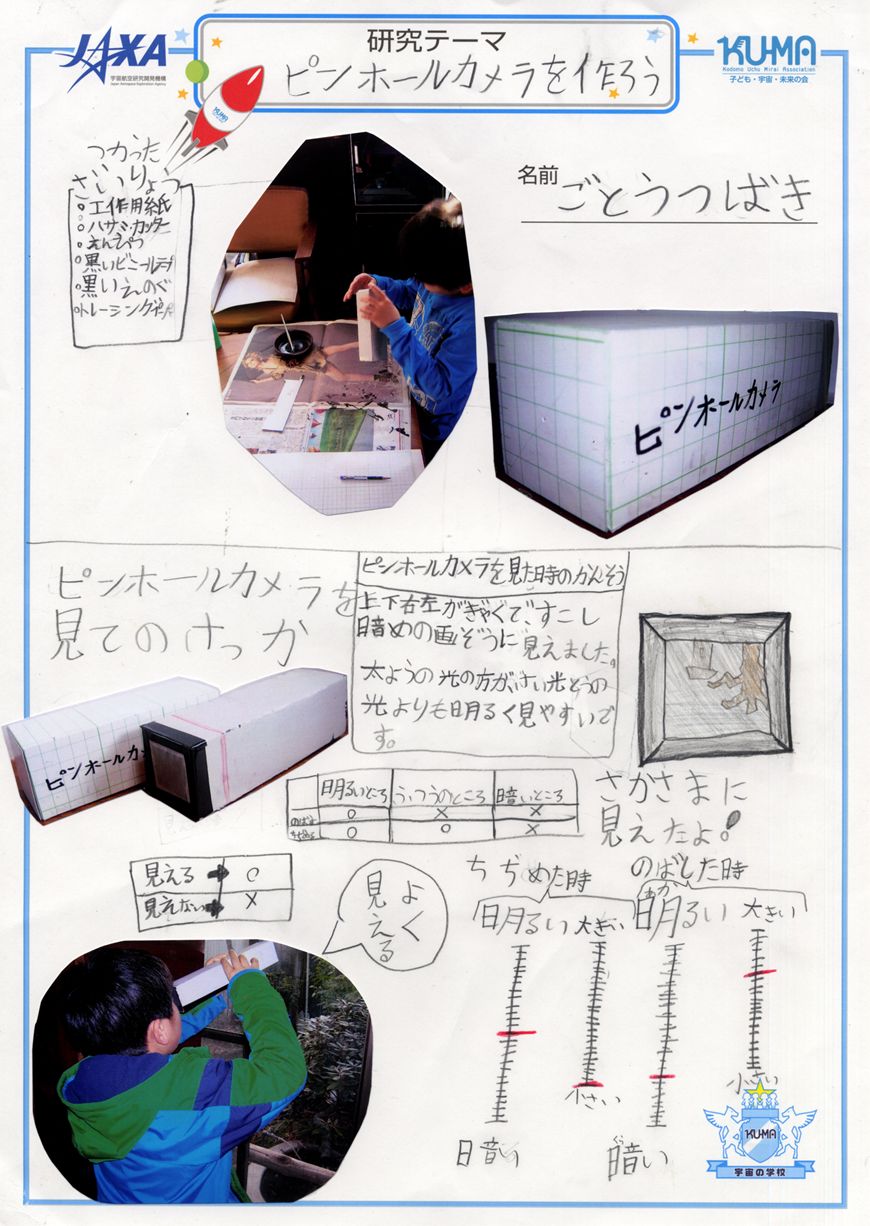 JAXA
宇宙航空研究開発機構
Japan Aerospace Exploration Agency
研究テーマ
ピンホールカメラを作ろう
KU-MA
Kodomo Uchu Mirai Association
子ども・宇宙・未来の会
KU-MA
つかった
ざいりょう
工作用紙
ハサミ・カッター
えんぴつ
黒いビニールテープ
黒いえのぐ
トレーシングペーパー
名前 ごとうつばき
ピンホールカメラ
ピンホールカメラを
見てのけっか
ピンホールカメラを見た時のかんそう
上下右左がぎゃくで、すこし
暗めの画ぞうに見えました。
太ようの光の方が、けい光とうの
光よりも明るく見やすいで
す。
ピンホールカメ
明るいところ ふつうのところ 暗いところ
のばす ○ × ×
ちぢめる ○ ○ ×
さかさまに
見えたよ!
見える→ ○
見えない→ ×
よく
見える
ちぢめた時 のばした時
明るい 大きい 明るい 大きい
あか
小さい 小さい
暗い 暗い
KU-MA
宇宙の学校